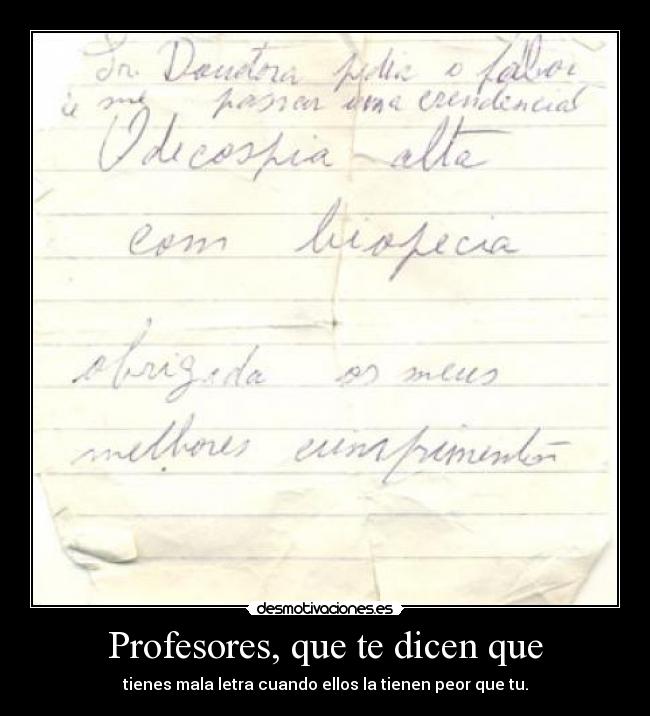 Sr. Doutora pedia o fabor
de me passar uma crendencial
Odecospia alta
com biopecia
obrigada os meus
melhores cumprimentos
desmotivaciones.es
Profesores, que te dicen que
tienes mala letra cuando ellos la tienen peor que tu.